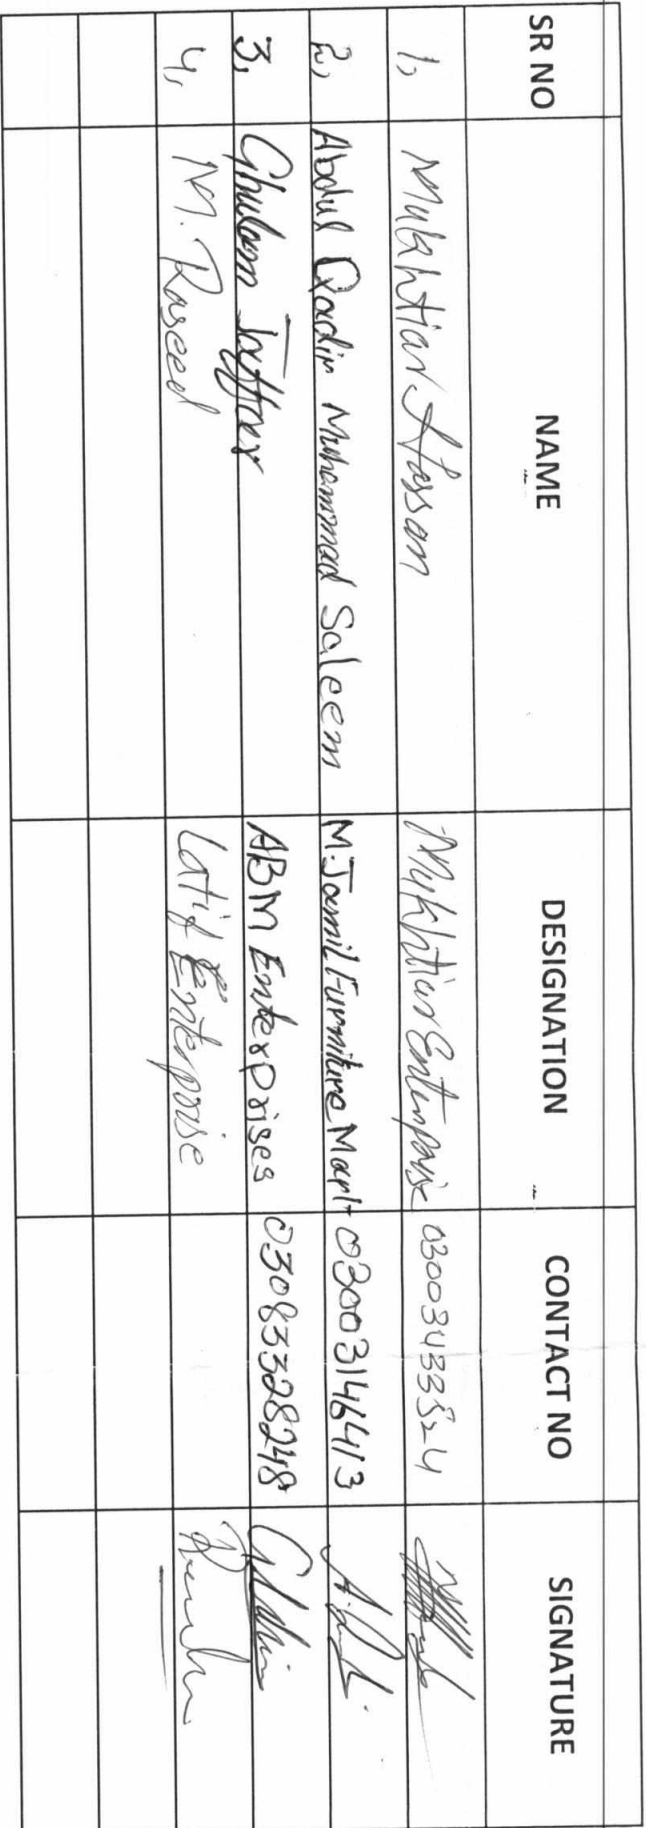 SR NO NAME DESIGNATION CONTACT NO SIGNATURE
1, Mukhtiar Hassan Mukhtiar Enterprise
2, Abdul Qadir Muhammad Saleem M. Jamil Furniture Mart 03003146413
3, Ghulam Jaffar ABM Enterprises 03083328248
4, M. Raseed Latif Enterprise